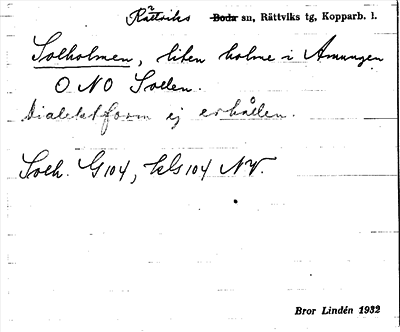 Rättviks Boda sn, Rättviks tg, Kopparb. l.
Solholmen, liten holme i Amungen
O.NO Sollen.
Dialektform ej erhållen.
Solh. G104, kls 104 NV.
Bror Lindén 1932